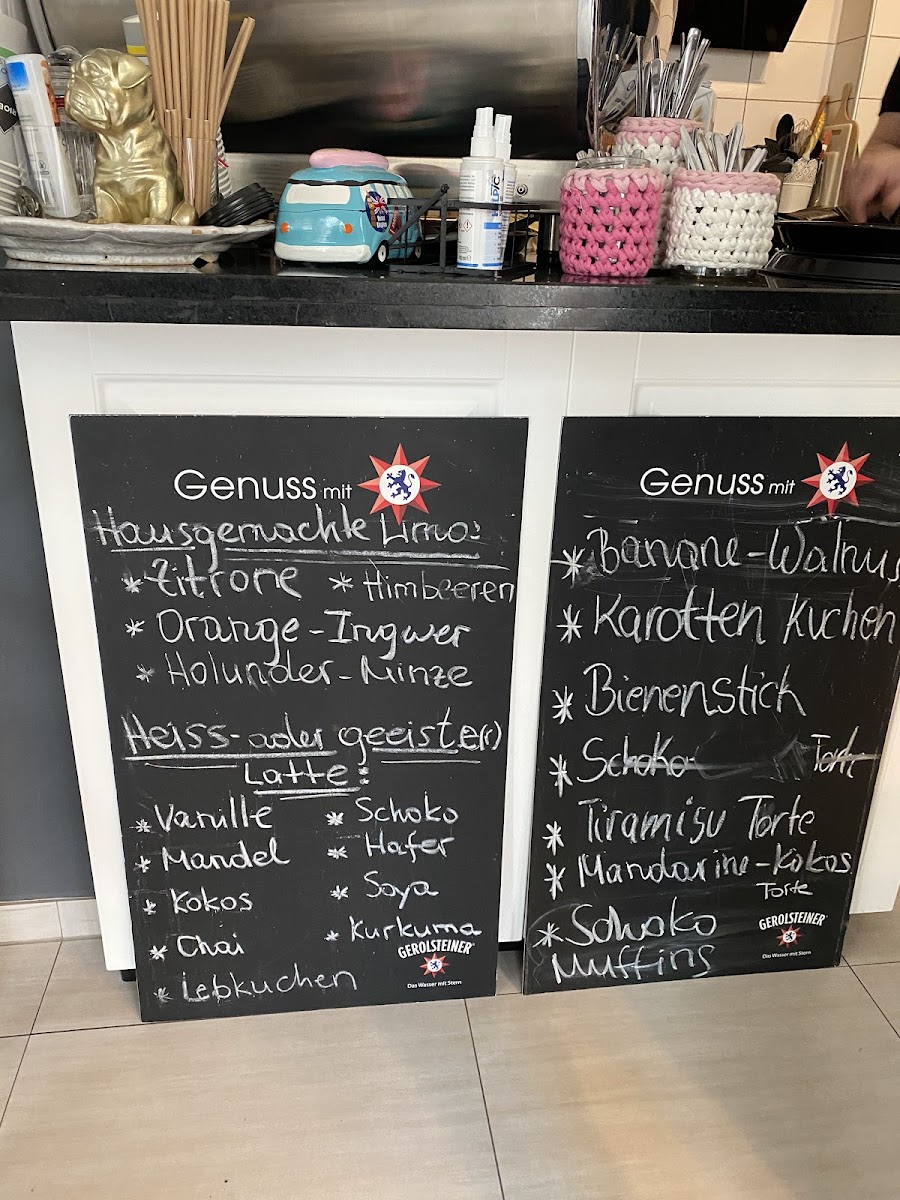 Genuss mit
Hausgemachte Limo:
* Zitrone * Himbeeren
* Orange-Ingwer
* Holunder-Minze
Heiss- oder geeiste(r)
Latte:
* Vanille * Schoko
* Mandel * Hafer
* Kokos * Soya
* Chai * Kurkuma
* Lebkuchen
GEROLSTEINER
Das Wasser mit Stern
Genuss mit
* Banane-Walnus
* Karotten Kuchen
* Bienenstich
* Schoko Torte
* Tiramisu Torte
* Mandarine-Kokos
Torte
* Schoko
Muffins
GEROLSTEINER
Das Wasser mit Stern